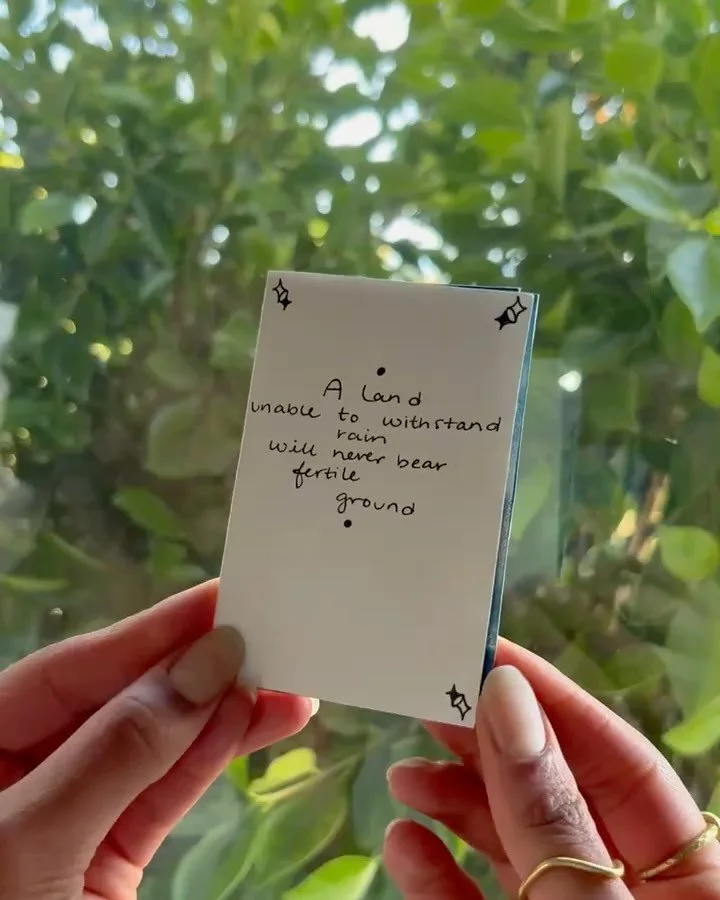 A Land
unable to withstand
rain
will never bear
fertile
ground